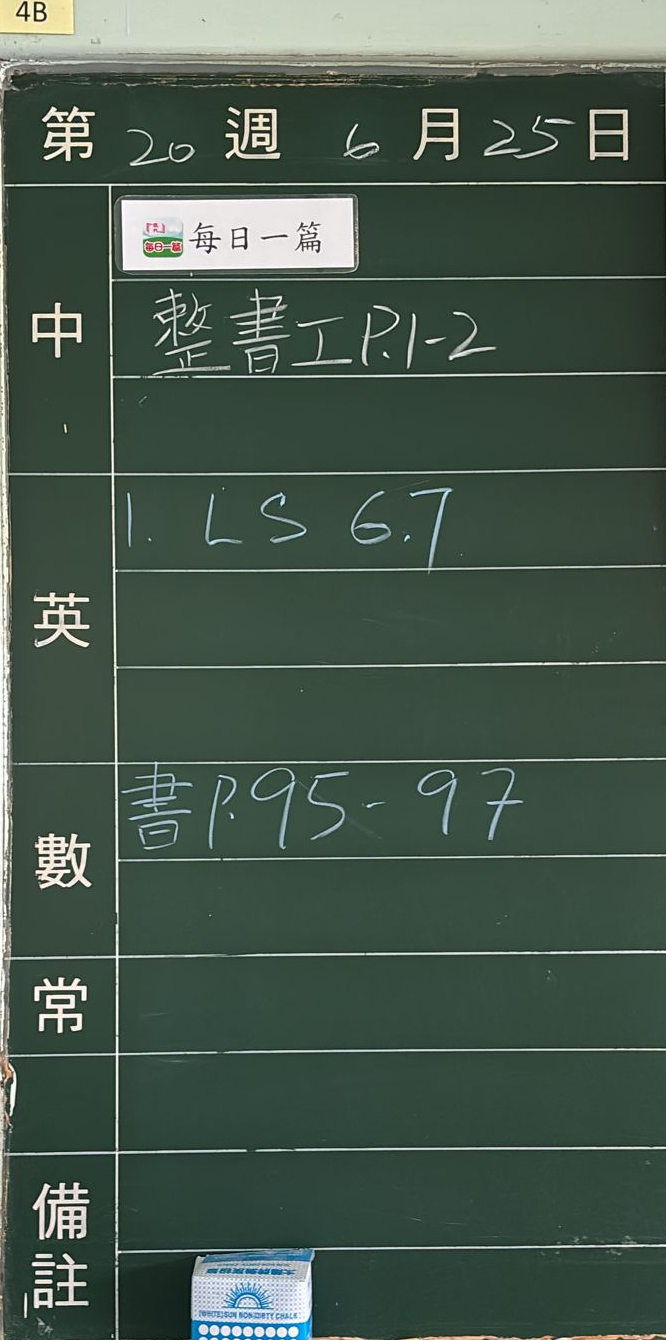 4B
第 20 週 6 月 25 日
中
每日一篇
每日一篇
整書工 P.1-2
英
1. LS 6.7
數
書 P.95-97
常
備註